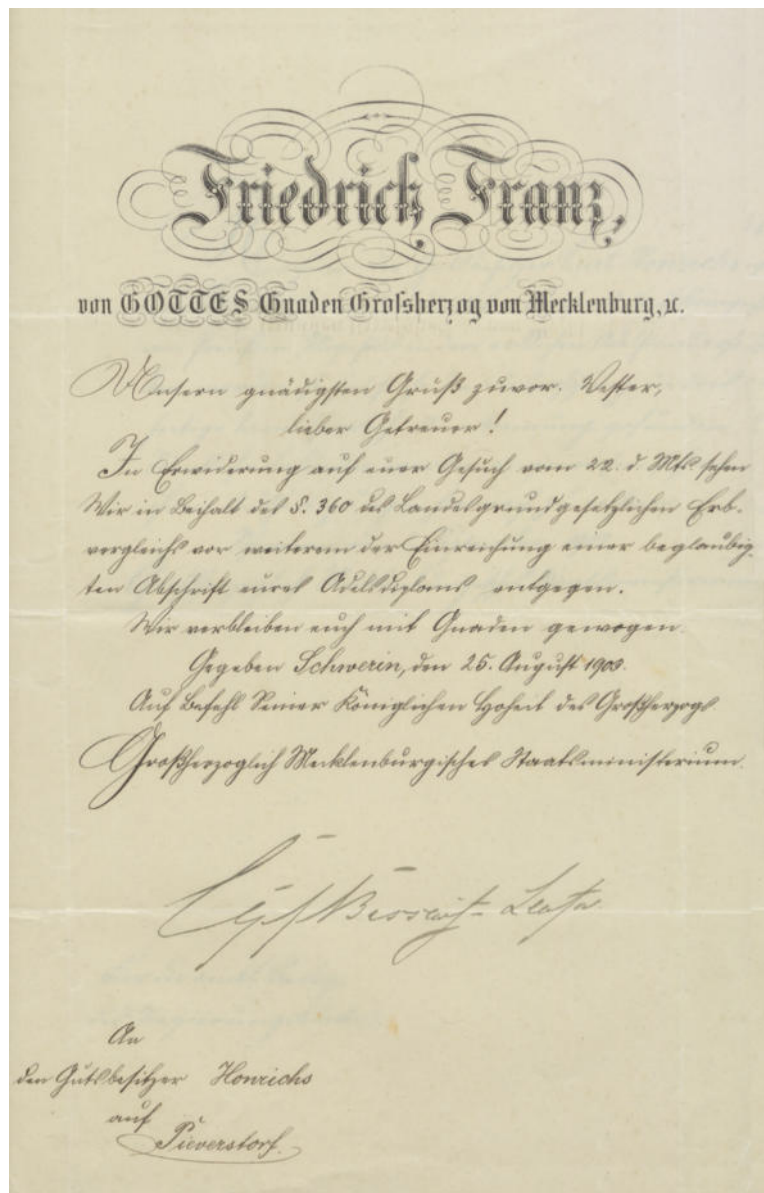 Friedrich Franz,
von GOTTES Gnaden Grofsherzog von Mecklenburg, ꝛc.
Unsern gnädigsten Gruß zuvor. Vester,
lieber Getreuer!
In Erwiderung auf euer Gesuch vom 22. d Mts sehen
Wir in Beihalt des §. 360 des Landesgrundgesetzlichen Erb-
vergleichs vor weiterem der Einreichung einer beglaubig-
ten Abschrift eures Adelsdiploms entgegen.
Wir verbleiben euch mit Gnaden gewogen.
Gegeben Schwerin, den 25. August 1903.
Auf Befehl Seiner Königlichen Hoheit des Großherzogs.
Großherzoglich Mecklenburgisches Staatsministerium.
An
den Gutsbesitzer Honrichs
auf
Pieverstorf.